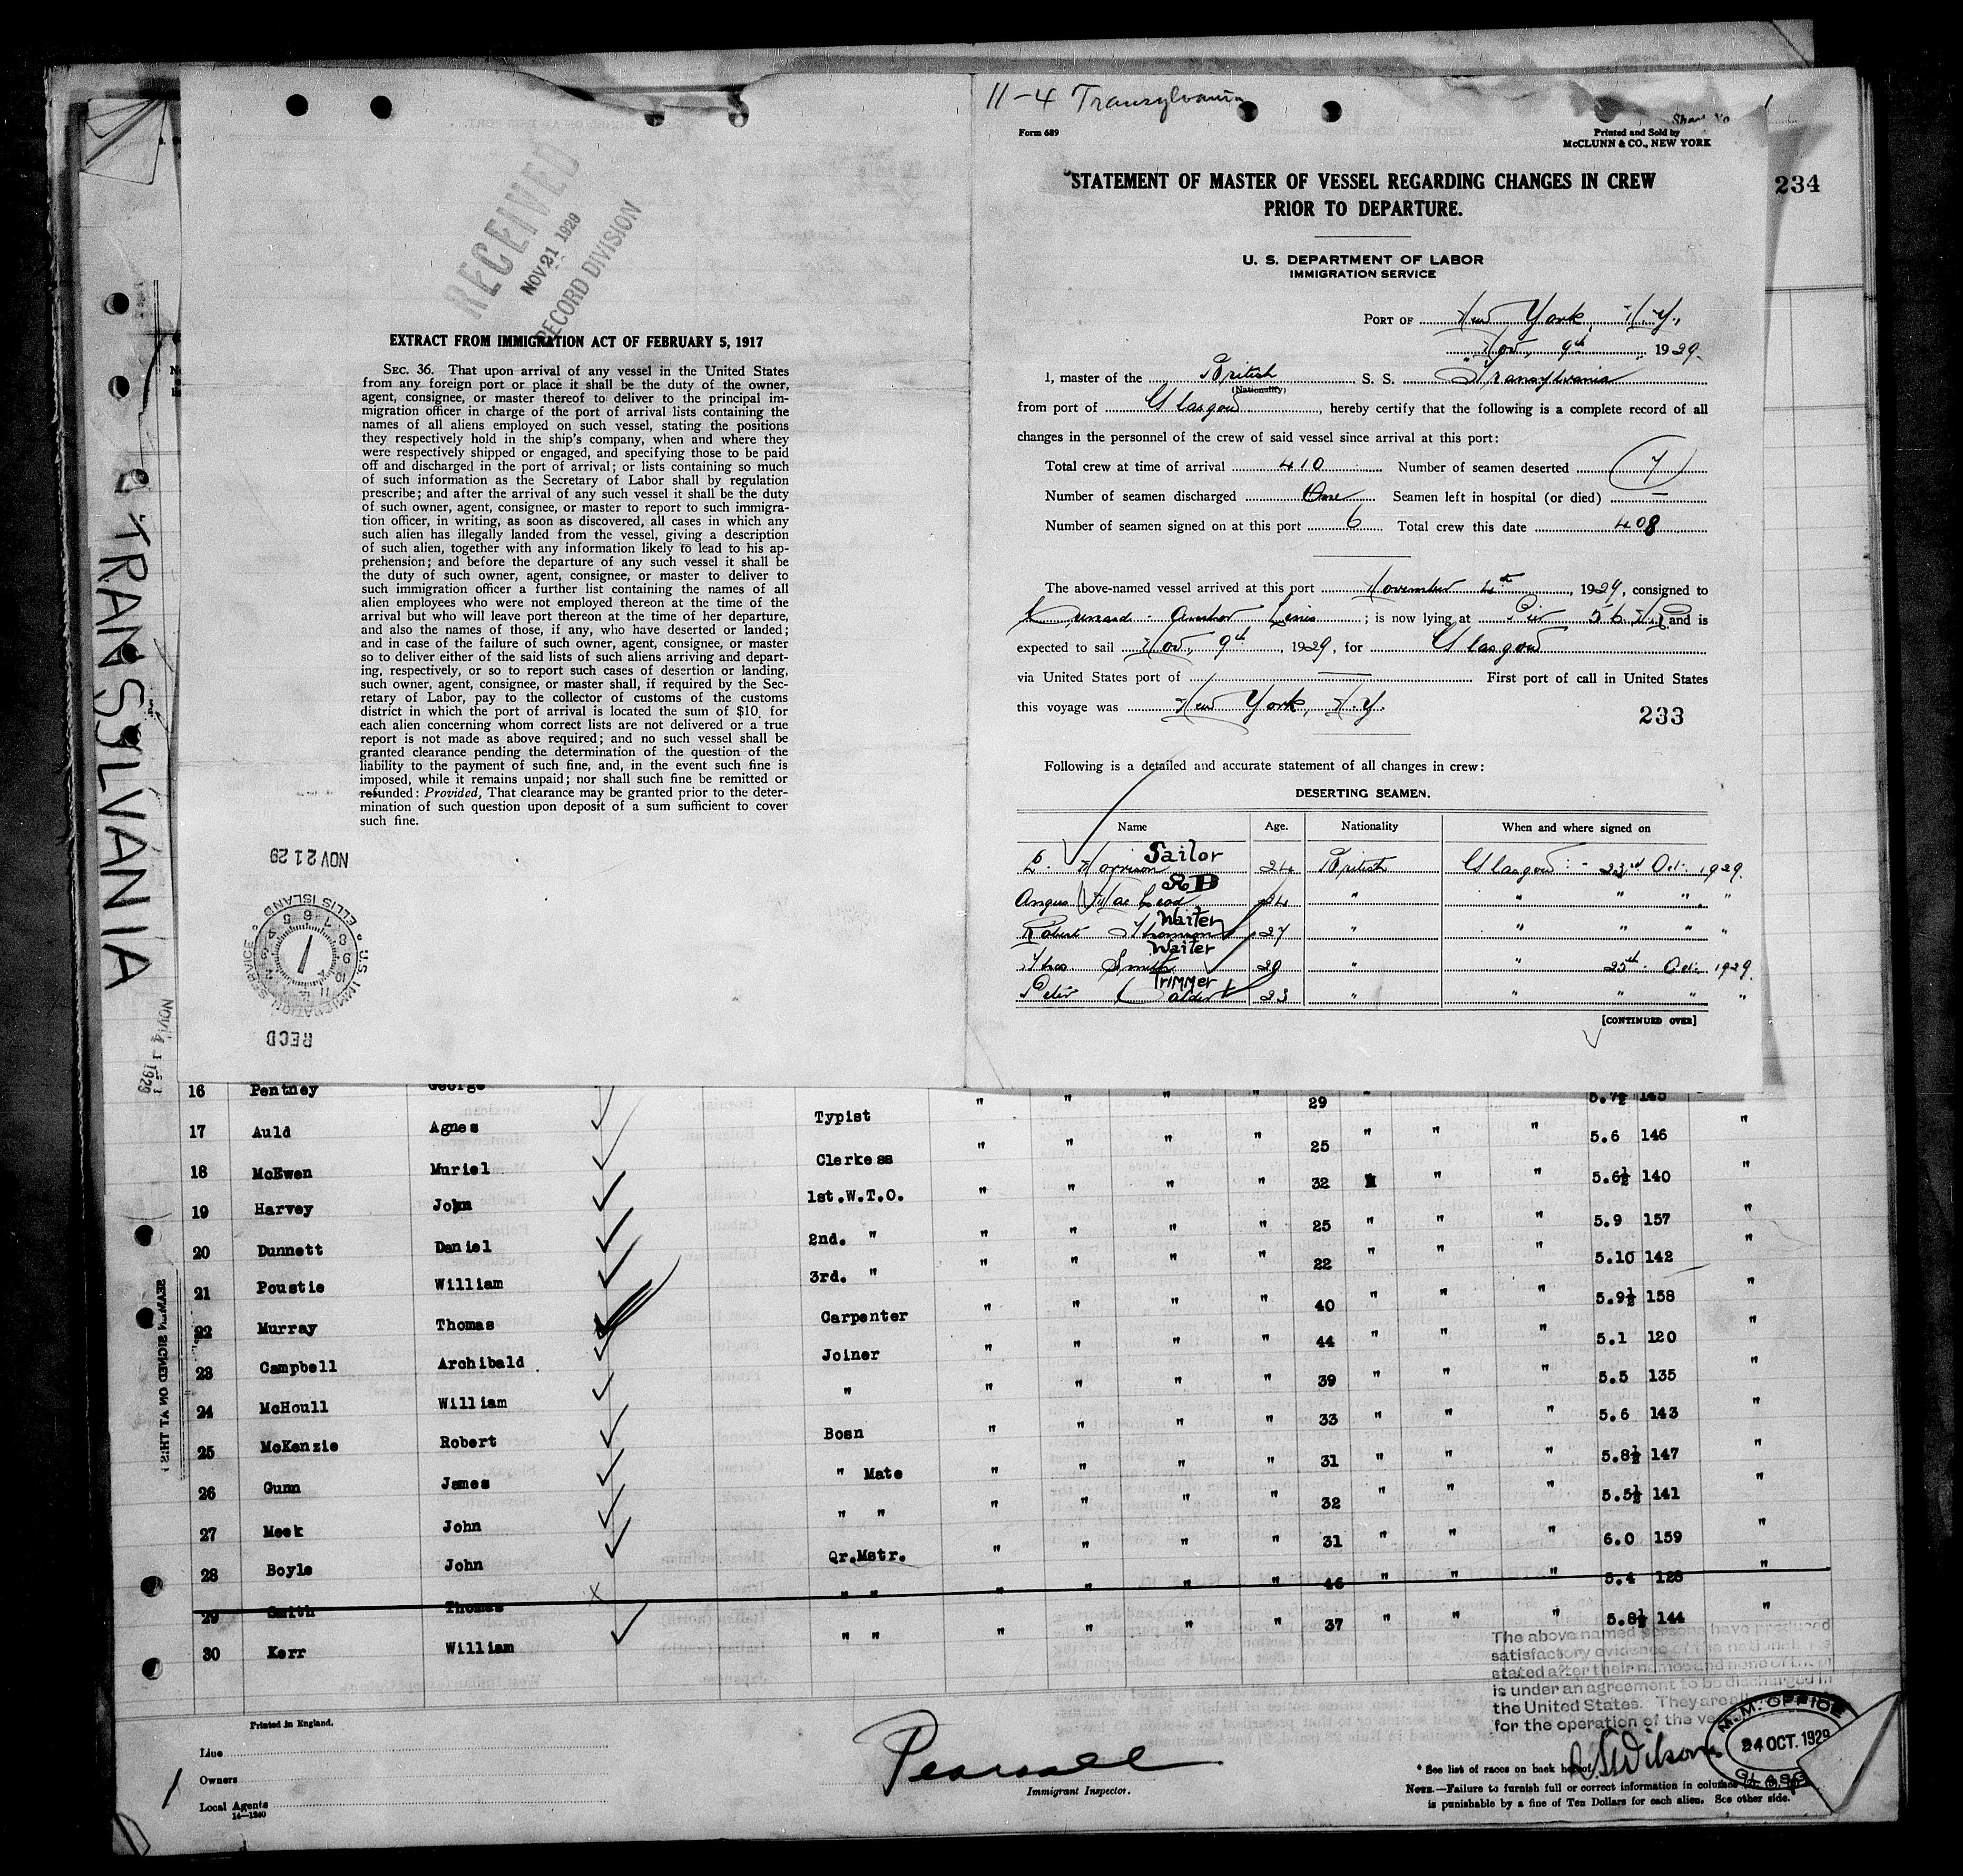 11-4 Transylvania
Form 689
Printed and Sold by
McCLUNN & CO., NEW YORK
STATEMENT OF MASTER OF VESSEL REGARDING CHANGES IN CREW
PRIOR TO DEPARTURE.
234
U. S. DEPARTMENT OF LABOR
IMMIGRATION SERVICE
PORT OF New York, N.Y.,
Nov., 9th 1929.
I, master of the British S. S. Transylvania
(Nationality)
from port of Glasgow, hereby certify that the following is a complete record of all
changes in the personnel of the crew of said vessel since arrival at this port:
Total crew at time of arrival 410 Number of seamen deserted 7
Number of seamen discharged One Seamen left in hospital (or died) —
Number of seamen signed on at this port 6 Total crew this date 408
The above-named vessel arrived at this port November 4th, 1929, consigned to
Cunard - Anchor Lines; is now lying at Pier 56 N.R. and is
expected to sail Nov., 9th, 1929, for Glasgow
via United States port of First port of call in United States
this voyage was New York, N.Y.
233
Following is a detailed and accurate statement of all changes in crew:
DESERTING SEAMEN.
Name Age. Nationality When and where signed on
Morrison Sailor 24 British Glasgow:- 23rd Oct. 1929.
Angus MacLeod AB 24 " " " " "
Robert Thomson Waiter 27 " " " " "
Thos. Smith Waiter 20 " " 25th. Oct. 1929.
Peter Calder Trimmer 23 " " " " "
[CONTINUED OVER]
RECEIVED
NOV 21 1929
RECORD DIVISION
EXTRACT FROM IMMIGRATION ACT OF FEBRUARY 5, 1917
SEC. 36. That upon arrival of any vessel in the United States
from any foreign port or place it shall be the duty of the owner,
agent, consignee, or master thereof to deliver to the principal im-
migration officer in charge of the port of arrival lists containing the
names of all aliens employed on such vessel, stating the positions
they respectively hold in the ship's company, when and where they
were respectively shipped or engaged, and specifying those to be paid
off and discharged in the port of arrival; or lists containing so much
of such information as the Secretary of Labor shall by regulation
prescribe; and after the arrival of any such vessel it shall be the duty
of such owner, agent, consignee, or master to report to such immigra-
tion officer, in writing, as soon as discovered, all cases in which any
such alien has illegally landed from the vessel, giving a description
of such alien, together with any information likely to lead to his ap-
prehension; and before the departure of any such vessel it shall be
the duty of such owner, agent, consignee, or master to deliver to
such immigration officer a further list containing the names of all
alien employees who were not employed thereon at the time of the
arrival but who will leave port thereon at the time of her departure,
and also the names of those, if any, who have deserted or landed;
and in case of the failure of such owner, agent, consignee, or master
so to deliver either of the said lists of such aliens arriving and depart-
ing, respectively, or so to report such cases of desertion or landing,
such owner, agent, consignee, or master shall, if required by the Sec-
retary of Labor, pay to the collector of customs of the customs
district in which the port of arrival is located the sum of $10 for
each alien concerning whom correct lists are not delivered or a true
report is not made as above required; and no such vessel shall be
granted clearance pending the determination of the question of the
liability to the payment of such fine, and, in the event such fine is
imposed, while it remains unpaid; nor shall such fine be remitted or
refunded: Provided, That clearance may be granted prior to the deter-
mination of such question upon deposit of a sum sufficient to cover
such fine.
NOV 21 29
U.S. IMMIGRATION SERVICE
ELLIS ISLAND
RECD
TRANSYLVANIA
16 Pentney George " " " " 29 " " " 5.7½ 145 "
17 Auld Agnes Typist " " " " 25 " " " 5.6 146 "
18 McEwen Muriel Clerkess " " " " 32 " " 5.6½ 140 "
19 Harvey John 1st.W.T.O. " " " " 25 " " " 5.9 157 "
20 Dunnett Daniel 2nd. " " " " " 22 " " " 5.10 142 "
21 Poustie William 3rd. " " " " " 40 " " " 5.9½ 158 "
22 Murray Thomas Carpenter " " " " 44 " " " 5.1 120 "
23 Campbell Archibald Joiner " " " " 39 " " " 5.5 135 "
24 McHoull William " " " " " 33 " " " 5.6 143 "
25 McKenzie Robert Bosn " " " " 31 " " " 5.8½ 147 "
26 Gunn James " Mate " " " " 32 " " " 5.5½ 141 "
27 Meek John " " " " " " 31 " " " 6.0 159 "
28 Boyle John Qr.Mstr. " " " " 46 " " " 5.4 128 "
29 Smith Thomas " " " " " " 37 " " " 5.8½ 144 "
30 Kerr William " "
The above named persons have produced
satisfactory evidence of the
stated after their names and none of them
is under an agreement to be discharged in
the United States. They are
for the operation of the
M.M. OFFICE
24 OCT. 1929
GLASG
Printed in England.
Line
Owners
Local Agents
14-1240
Pearsall
Immigrant Inspector.
Wilson
* See list of races on back hereof.
NOTE.—Failure to furnish full or correct information in columns
is punishable by a fine of Ten Dollars for each alien. See other side.